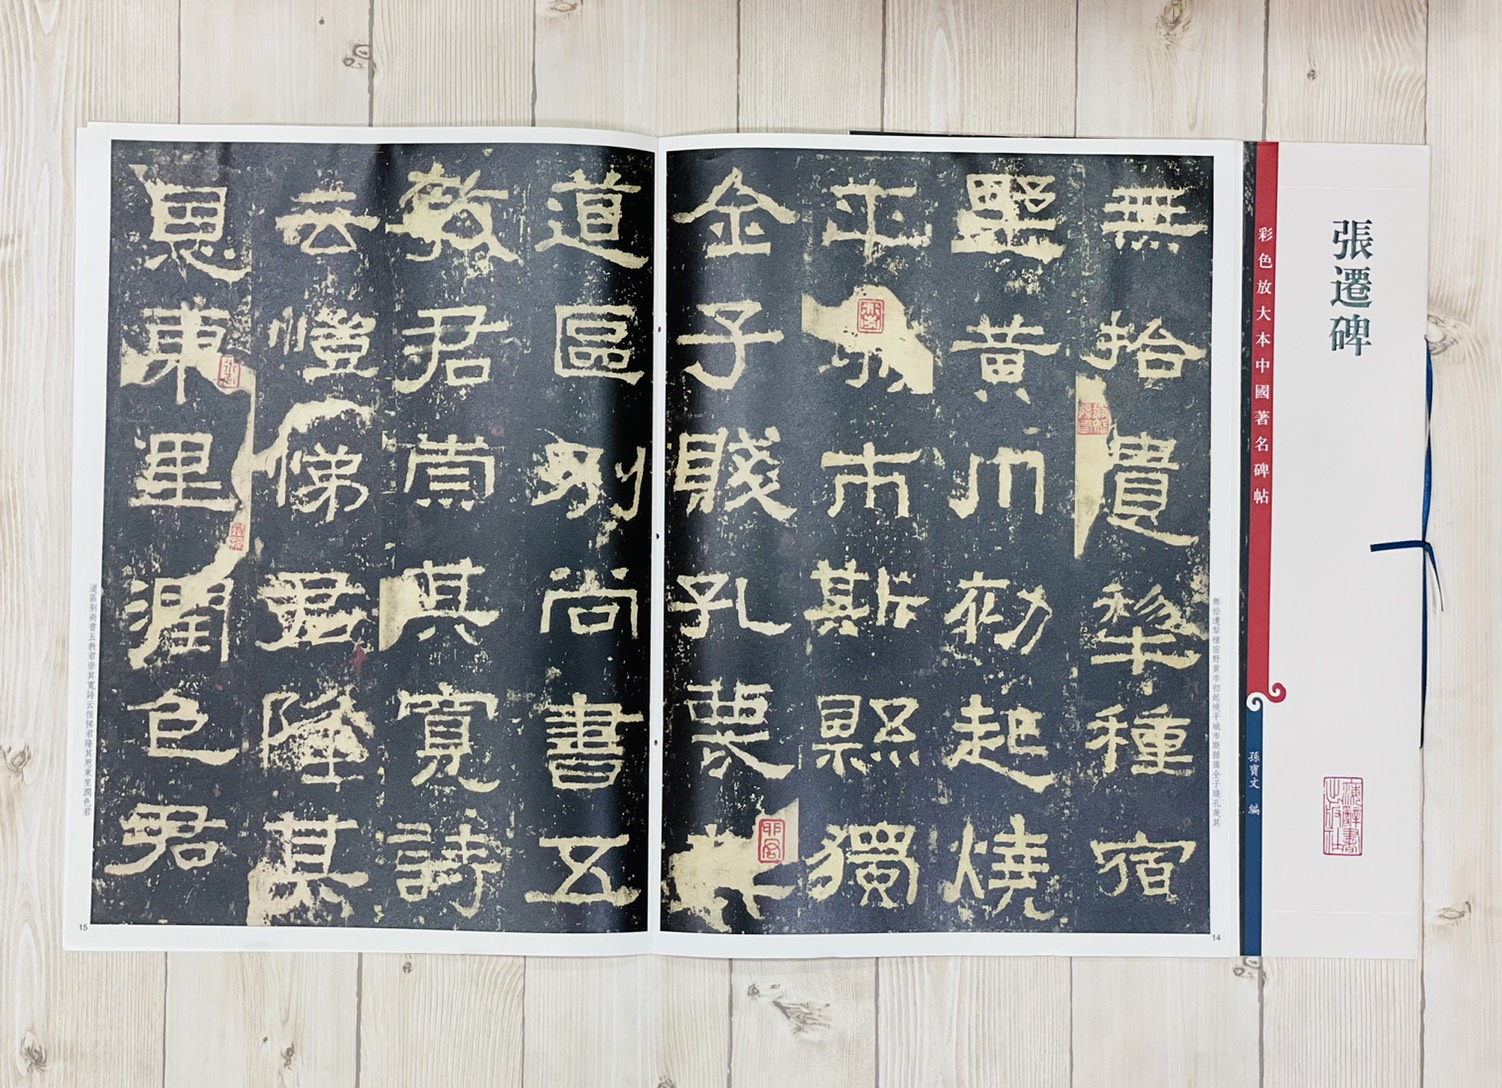 張遷碑
彩色放大本中國著名碑帖
孫寶文 編
無拾遺犂種宿
壄黃巾初起燒
平城市斯縣獨
全子賤孔蔑其
無拾遺犂種宿野黃巾初起燒平城市斯縣獨全子賤孔蔑其
14
道區別尚書五
教君崇其寬詩
云愷悌君隆其
恩東里潤色君
道區別尚書五教君崇其寬詩云愷悌君隆其恩東里潤色君
15